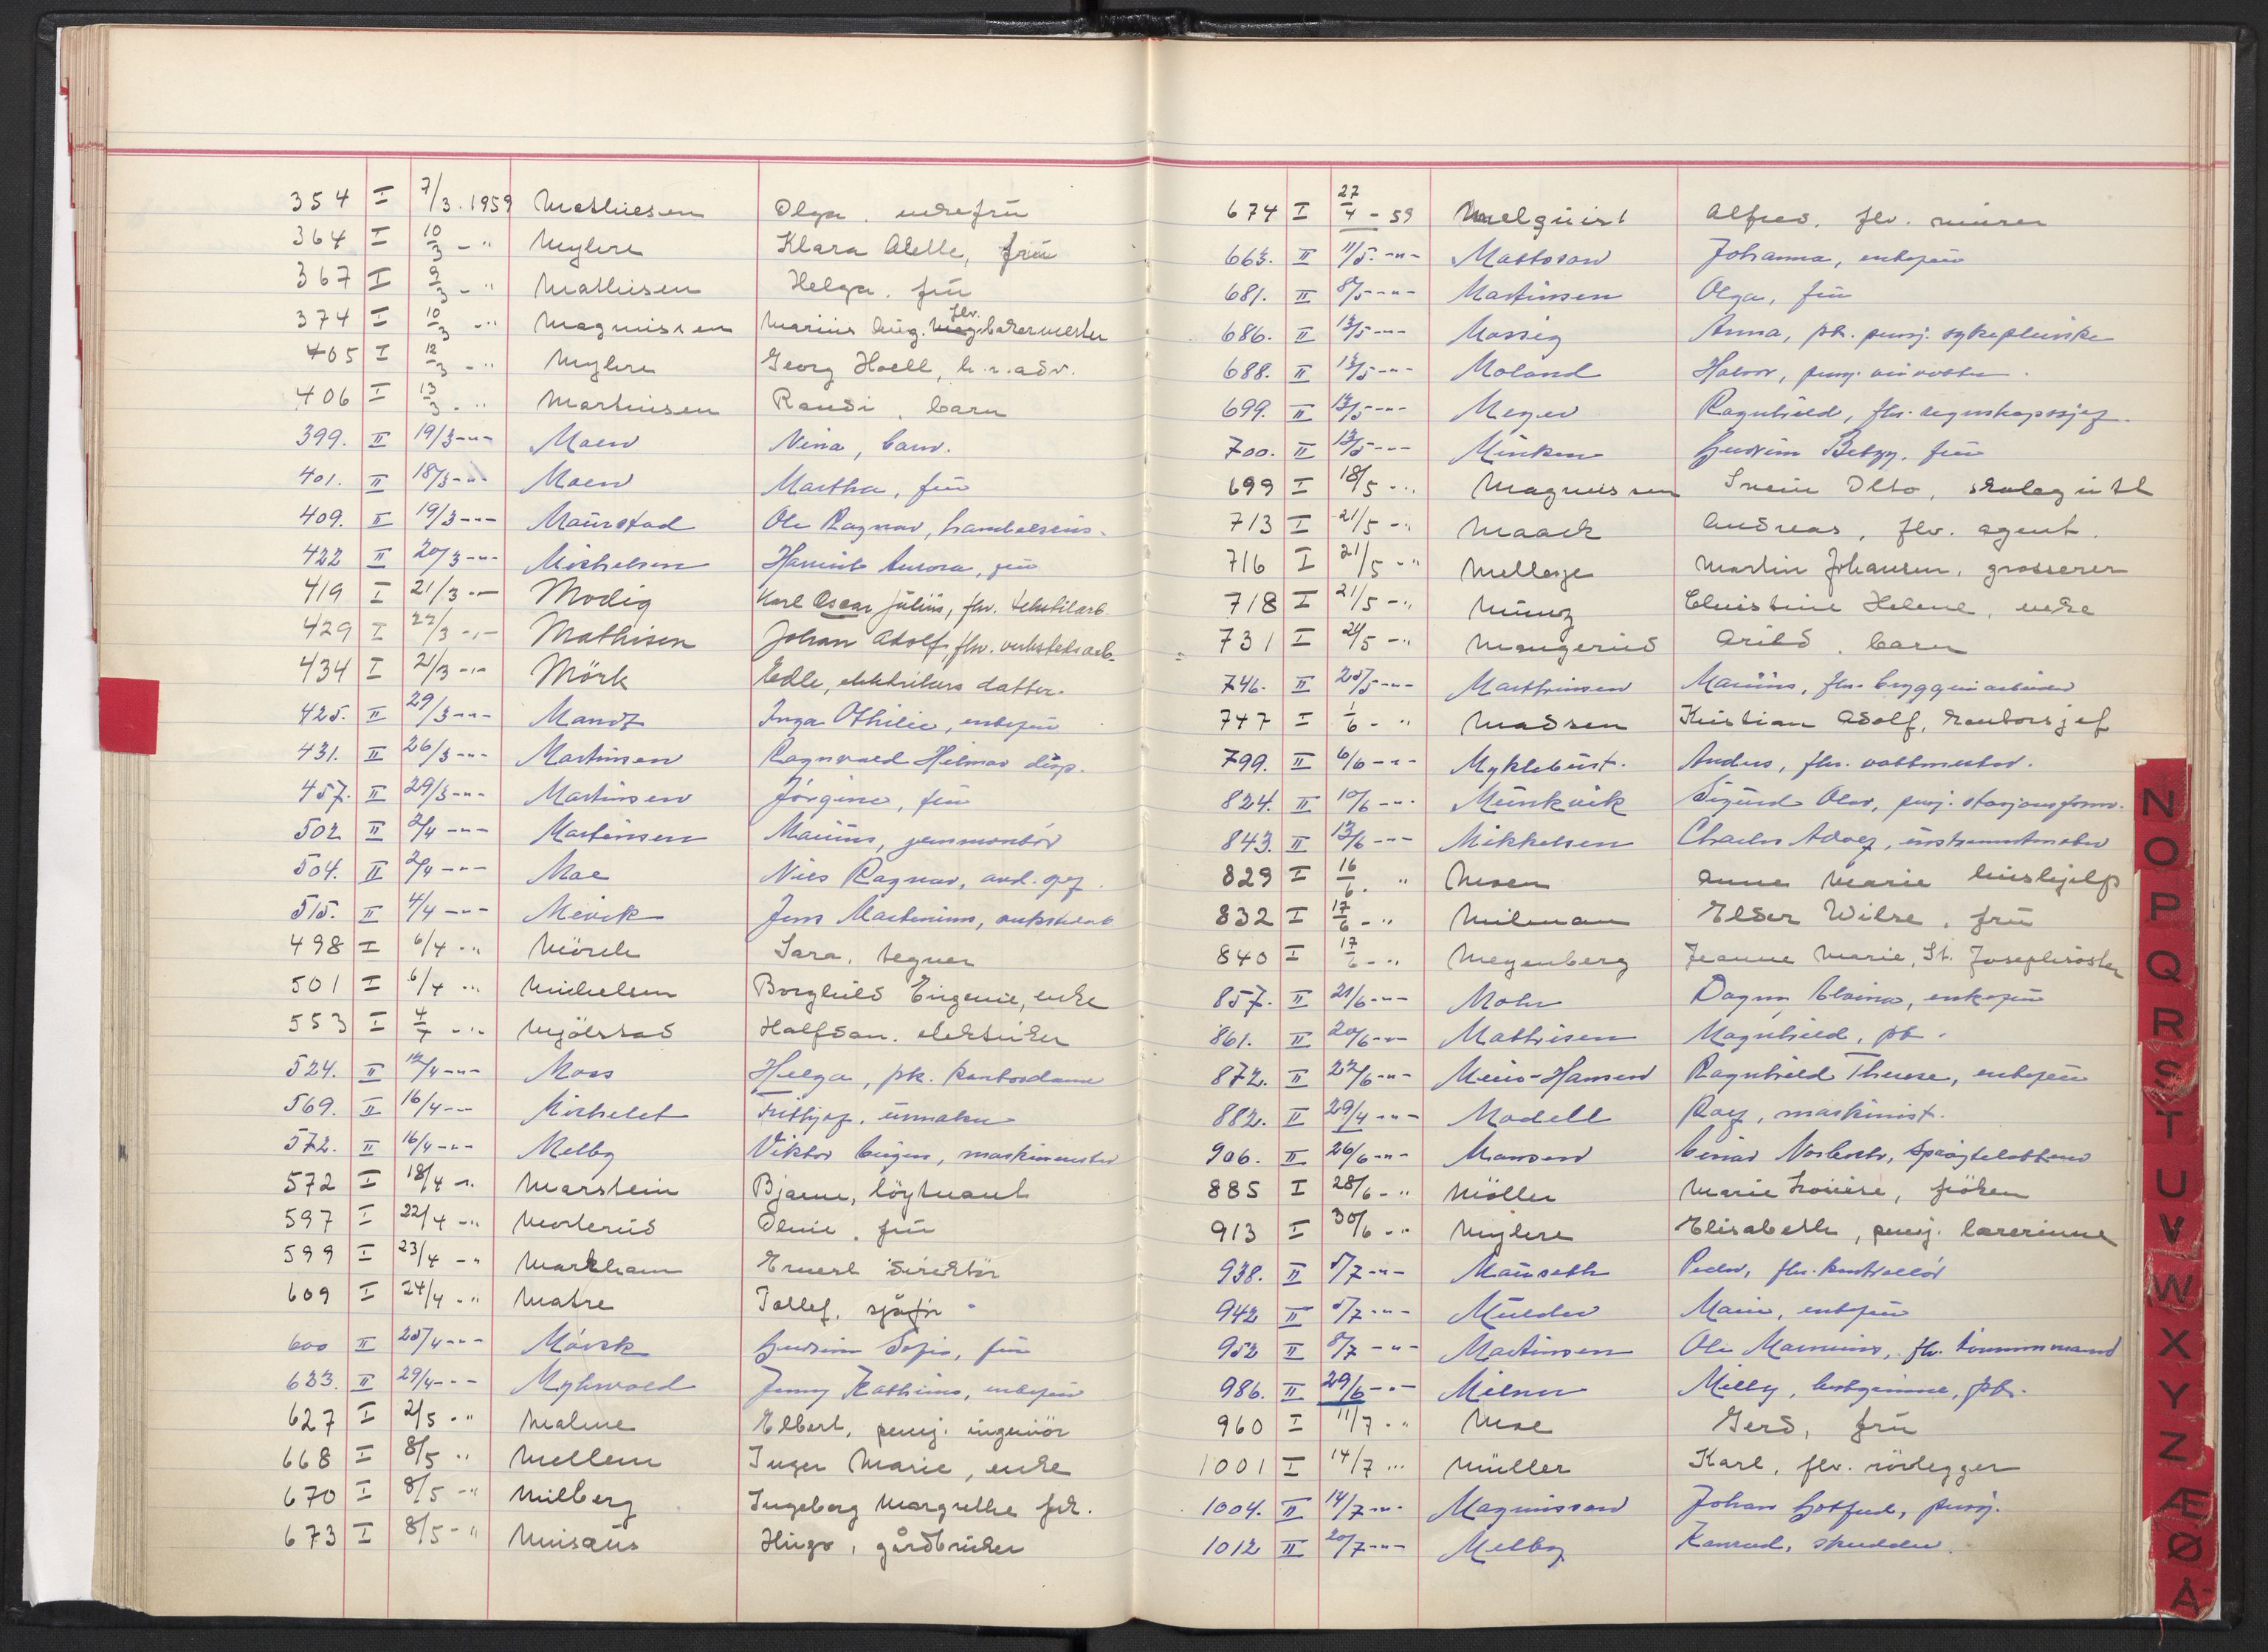 354 I 7/3.1959 Mathiesen Olga. enkefrú
364 I 10/3 - " Myhre Klara Adelle, frú
367 I 9/3 - " Mathiesen Helga. frú
374 I 10/3 - " Magnussen Marius Aug. flv. bakermester
405 I 12/3 - " Myhre Georg Hoell, h.r.adv.
406 I 13/3 - " Martinsen Randi, barn
399. II 19/3 -"- Moen Nina, barn.
401. II 18/3 -"- Moen Martha, frú
409. II 19/3 -"- Maurstad Ole Ragnar,
422 II 20/3 -"- Michelsen Aurora, frú
419 I 21/3 -"- Modig Karl Oscar Júliús, flv. tekstilarb.
429 I 22/3 -"- Mathisen Johan Adolf, flv. verkstedsarb.
434 I 21/3 -"- Mörk Edle, elektrikers datter.
425. II 29/3 -"- Mandt Inga Othilie, enkefrú
431. II 26/3 -"- Martinsen Ragnvald Hilmar disp.
457. II 29/3 -"- Martinsen Jørgine, frú
502 II 2/4 -"- Martinsen Marius, jernmontør
504. II 2/4 -"- Moe Nils Ragnar, avd. sjef.
515. II 4/4 -"- Jens Martinius,
498 I 6/4 - " Mörch Sara, tegner
501 I 6/4 - " Michelsen Borghild Eugenie, enke
553 I 4/4 - " Mjölstad Halfdan. elektriker
524. II 12/4 -"- Moss Helga, pk. kontordame
569. II 16/4 -"- Michelet Fritjof, úrmaker
572. II 16/4 -"- Melby Viktor Eugen, maskinmester
572 I 18/4 - " Marstein Bjarne, löytnant
597 I 22/4 - " Morterud Oline. frú
599 I 23/4 - " Markham Ernest direktör
609 I 24/4 - " Matre Tollef.
600 II 25/4 -"- Mørck Gudrun Sofie, frú
633. II 29/4 -"- Myhrvold Jenny Kathinka, enkefrú
627 I 2/5 - " Malme Elbert, pensj. ingeniör
668 I 8/5 " Mellem Inger Marie, enke
670 I 8/5 - " Milberg Ingeborg Margrethe frk.
673 I 8/5 - " Musæus Húgo, gårdbrúker
674 I 27/4 - 59 Melquist Alfred. flv. múrer
663. II 11/5. -"- Johanna, enkefrú
681. II 8/5 -"- Martinsen Olga, frú
686. II 13/5 -"- Mossig Anna, pk. pensj. sykepleierske
688. II 13/5 -"- Moland Halvor, pensj.
699. II 13/5 -"- Meyer Ragnhild, flv. regnskapssjef.
700. II 13/5 -"- Minken Gudrun Betzy, frú
699 I 18/5 - " Magnussen Svein Otto, skolegutt
713 I 21/5 - " Maack Andreas, flv. agent.
716 I 21/5 - " Mellesje Martin Johansen, grosserer
718 I 21/5 - " Múnz Christine Helene, enke
731 I 24/5 - " Mangerud Arild, barn
746. II 25/5 -"- Marthinsen Marius, flv. bryggeriarbeider
747 I 1/6 - " Madsen Kristian Adolf, kontorsjef
799. II 6/6 -"- Myklebúst. Anders, flv.
824. II 10/6 -"- Munkvik Sigurd Olav, pensj. stasjonsform.
843. II 13/6 -"- Mikkelsen Charles Adolf, instrumentmaker
829 I 16/6. " Moen Anne Marie húshjelp
832 I 17/6 - " Milman Elder Wilse, frú
840 I 17/6 - " Meyenberg Jeanne Marie, St. Josephsöster
857. II 21/6 -"- Mohr Dagny Elvina, enkefrú
861. II 20/6 -"- Mathisen Magnhild, pk.
872. II 22/6 -"- Ragnhild Therese, enkefrú
882. II 29/4 -"- Modell Rolf, maskinist.
906. II 26/6 -"- Monsen Einar
885 I 28/6 - " Möller Marie Louise, fröken
913 I 30/6 - " Myhre Elisabeth, pensj. lærerinne
938. II 5/7 -"- Maúseth Peder, flv. kontrollør
942 II 5/7 -"- Múlder Marie, enkefrú
952 II 8/7 -"- Martinsen Ole Marinius, flv. tømmermand
986. II 29/6 -"- Milner Milly, pk.
960 I 11/7 - " Moe Gerd, frú
1001 I 14/7 ... Müller Karl, flv. rörlegger
1004. II 14/7 -"- Magnússon Johan Gotfred, pensj.
1012 II 20/7 -"- Melby Konrad, skredder.
N
O
P
Q
R
S
T
U
V
W
X
Y
Z
Æ
Ø
Å